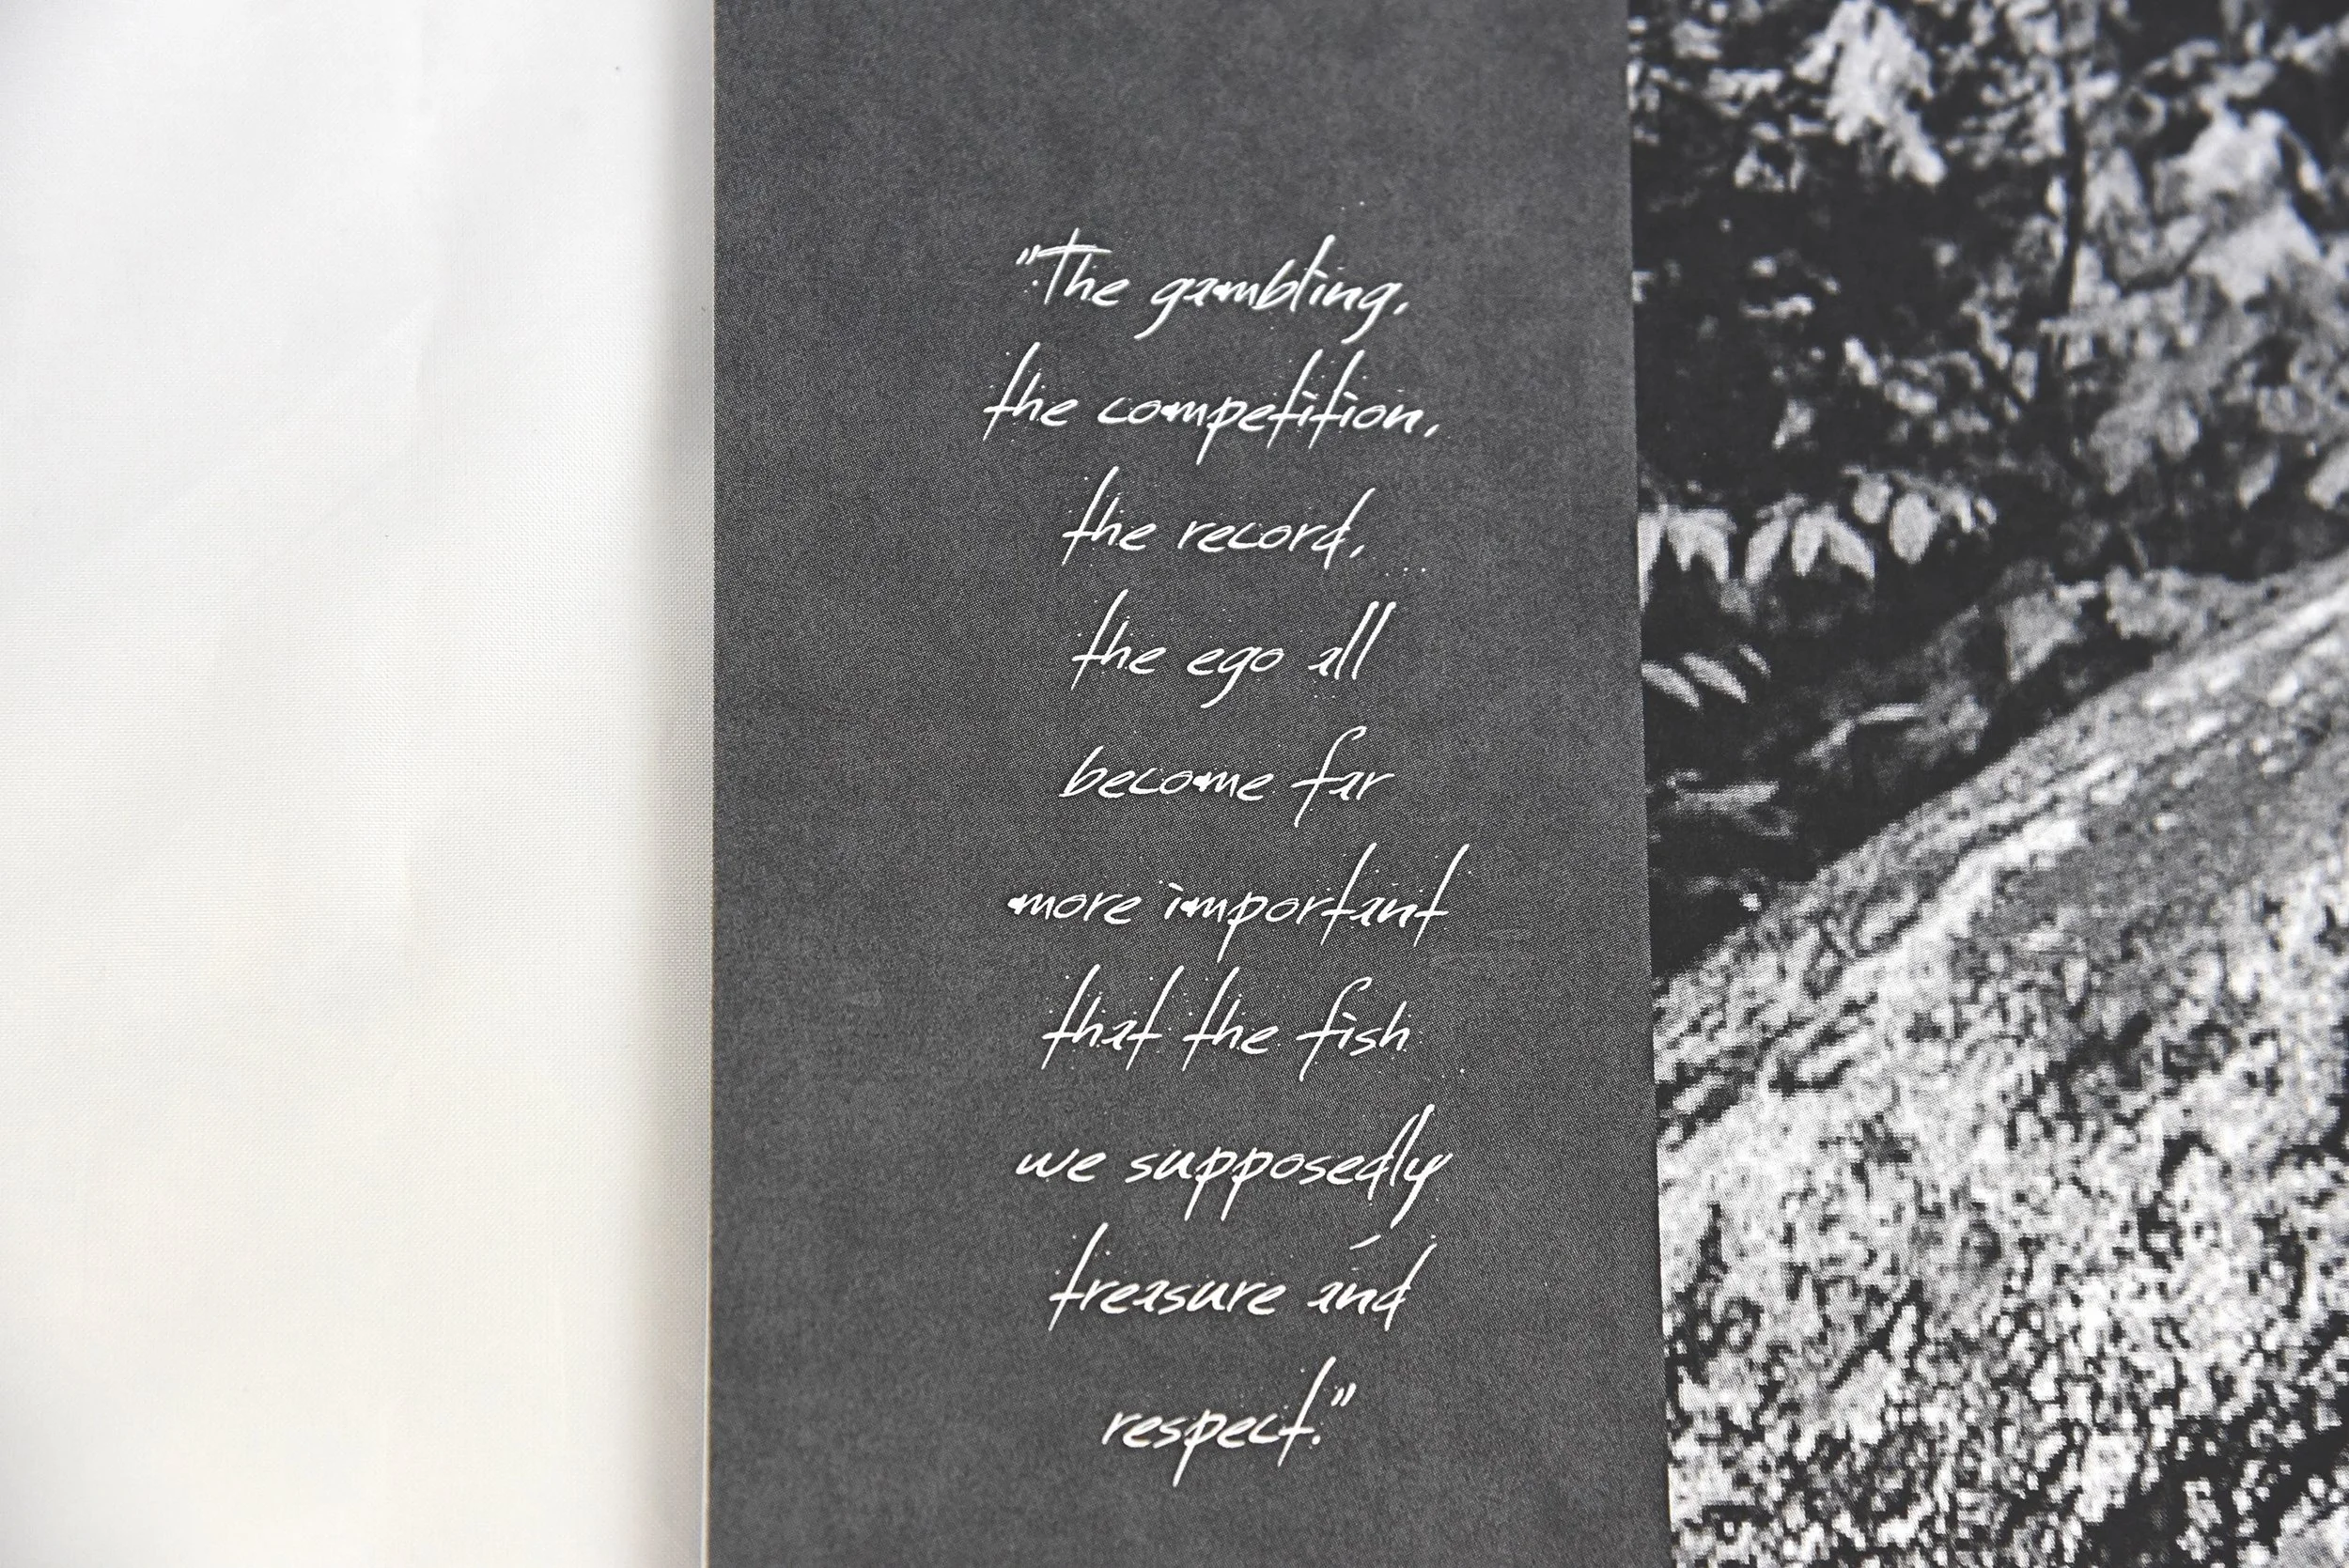 "The gambling,
the competition,
the record,
the ego all
become far
more important
that the fish
we supposedly
treasure and
respect."